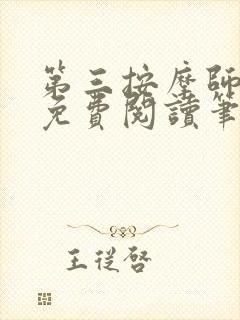 第三按摩師
免費閱讀筆
王從啓